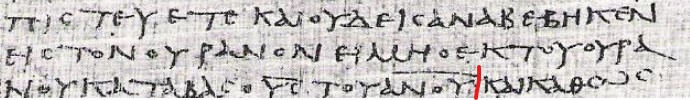 ΠΙΣΤΕΥΣΕΤΕ ΚΑΙΟΥΔΕΙΣΑΝΑΒΕΒΗΚΕΝ
ΕΙΣΤΟΝΟΥΡΑΝΟΝΕΙΜΗΟΕΚΤΟΥΟΥΡΑ
ΝΟΥΚΑΤΑΒΑΣΟΥΣΤΟΥΑΝΟΥ ΚΑΙΚΑΘΩΣ